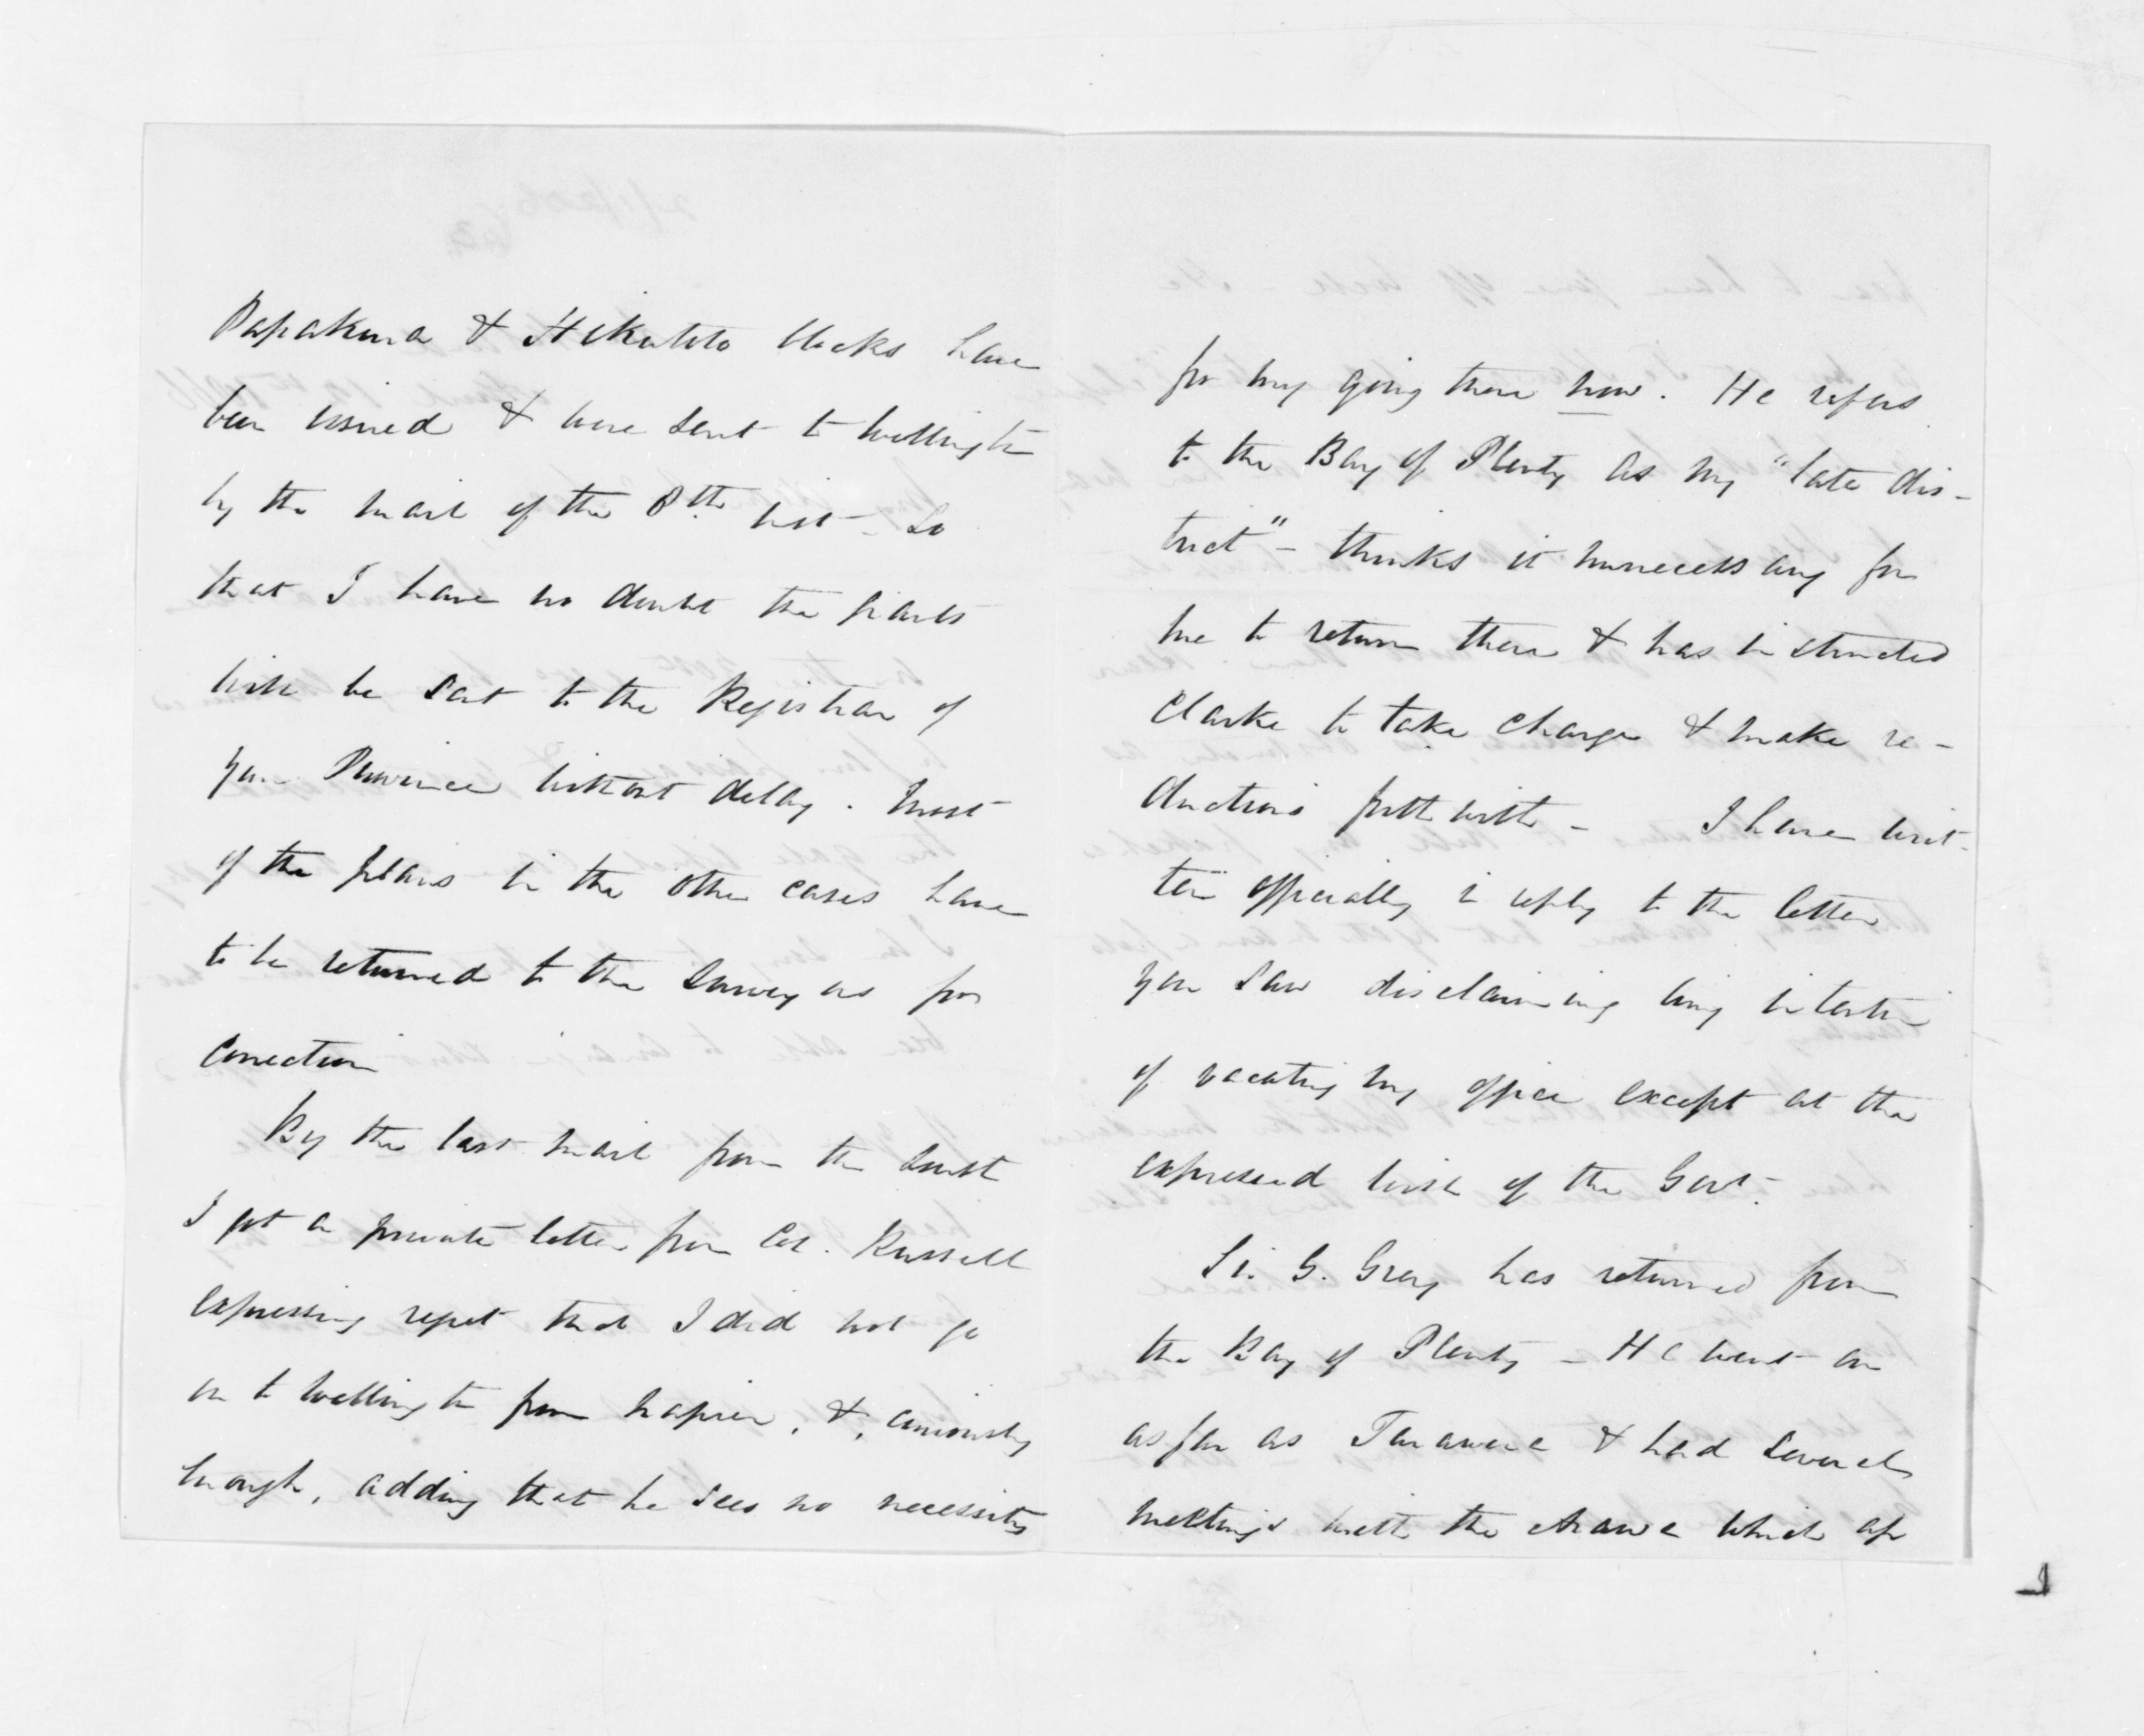 Papakura & Hikutoto blocks have
been issued & were sent to Wellington
by the mail of the 8th inst - So
that I have no doubt the grants
will be sent to the Registrar of
your Province without delay. Most
of the plans in the other cases have
to be returned to the Surveyors for
correction
By the last mail from the South
I got a private letter from Col. Russell
expressing regret that I did not go
on to Wellington from Napier, &, curiously
enough, adding that he sees no necessity
for my going there now. He refers
to the Bay of Plenty as my "late dis-
trict" - thinks it unnecessary for
me to return there & has instructed
Clarke to take charge & make re-
ductions forthwith - I have writ-
ten officially in reply to the letter
you saw disclaiming any intention
of vacating my office except at the
expressed wish of the Govt.
Sir G. Grey has returned from
the Bay of Plenty - He went on
as far as Tarawera & had several
meetings with the Arawa which ap